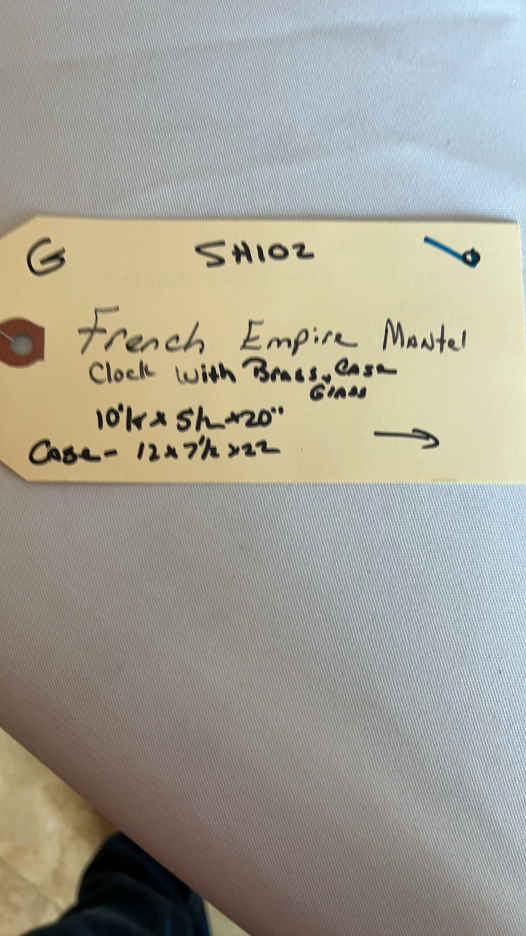 G SH102
French Empire Mantel
Clock with Brass, Case
Glass
10½ x 5½ x 20"
Case - 12 x 7½ x 22